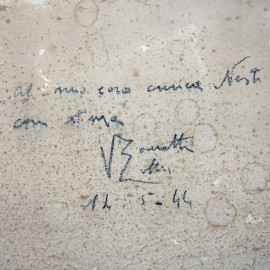 al mio caro amico Nesti
con stima
12-5-44